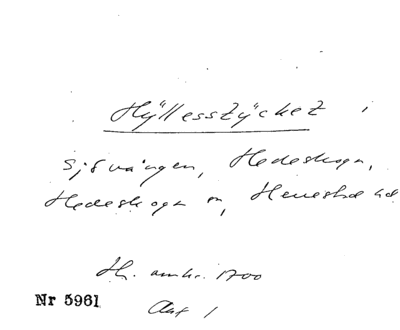 Hÿllesstÿcket i
Sjövången, Hedeskoga,
Hedeskoga sn, Herrestads hd
H. omkr. 1700
Nr 5961
Akt 1